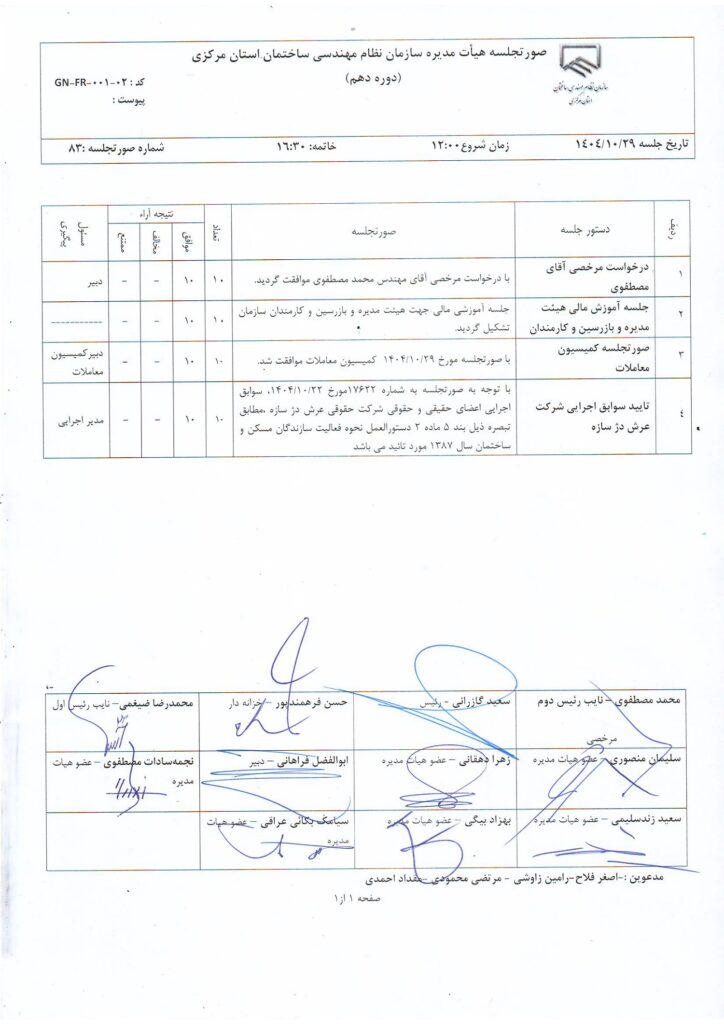 صورتجلسه هیأت مدیره سازمان نظام مهندسی ساختمان استان مرکزی
(دوره دهم)
سازمان نظام مهندسی ساختمان
استان مرکزی
کد : GN-FR-۰۰۱-۰۲
پیوست :
تاریخ جلسه ۱۴۰۴/۱۰/۲۹
زمان شروع ۱۲:۰۰
خاتمه: ۱۶:۳۰
شماره صورتجلسه :۸۳
ردیف
دستور جلسه
صورتجلسه
تعداد
نتیجه آراء
موافق
مخالف
ممتنع
مسئول
پیگیری
۱
درخواست مرخصی آقای
مصطفوی
با درخواست مرخصی آقای مهندس محمد مصطفوی موافقت گردید.
۱۰
۱۰
–
–
دبیر
۲
جلسه آموزش مالی هیئت
مدیره و بازرسین و کارمندان
جلسه آموزشی مالی جهت هیئت مدیره و بازرسین و کارمندان سازمان
تشکیل گردید.
۱۰
۱۰
–
–
----------
۳
صورتجلسه کمیسیون
معاملات
با صورتجلسه مورخ ۱۴۰۴/۱۰/۲۹ کمیسیون معاملات موافقت شد.
۱۰
۱۰
–
–
دبیرکمیسیون
معاملات
٤
تایید سوابق اجرایی شرکت
عرش دژ سازه
با توجه به صورتجلسه به شماره ۱۷۶۲۲مورخ ۱۴۰۴/۱۰/۲۲، سوابق
اجرایی اعضای حقیقی و حقوقی شرکت حقوقی عرش دژ سازه ،مطابق
تبصره ذیل بند ۵ ماده ۲ دستورالعمل نحوه فعالیت سازندگان مسکن و
ساختمان سال ۱۳۸۷ مورد تائید می باشد
۱۰
۱۰
–
–
مدیر اجرایی
محمد مصطفوی – نایب رئیس دوم
مرخصی
سعید گازرانی - رئیس
حسن فرهمندپور – خزانه دار
محمدرضا ضیغمی– نایب رئیس اول
سلیمان منصوری – عضو هیات مدیره
زهرا دهقانی – عضو هیات مدیره
ابوالفضل فراهانی – دبیر
نجمه‌سادات مصطفوی – عضو هیات
مدیره
سعید زندسلیمی – عضو هیات مدیره
بهزاد بیگی – عضو هیات مدیره
سیامک یکانی عراقی – عضو هیات
مدیره
مدعوین :-اصغر فلاح-رامین زاوشی - مرتضی محمودی –مقداد احمدی
صفحه ۱ از۱